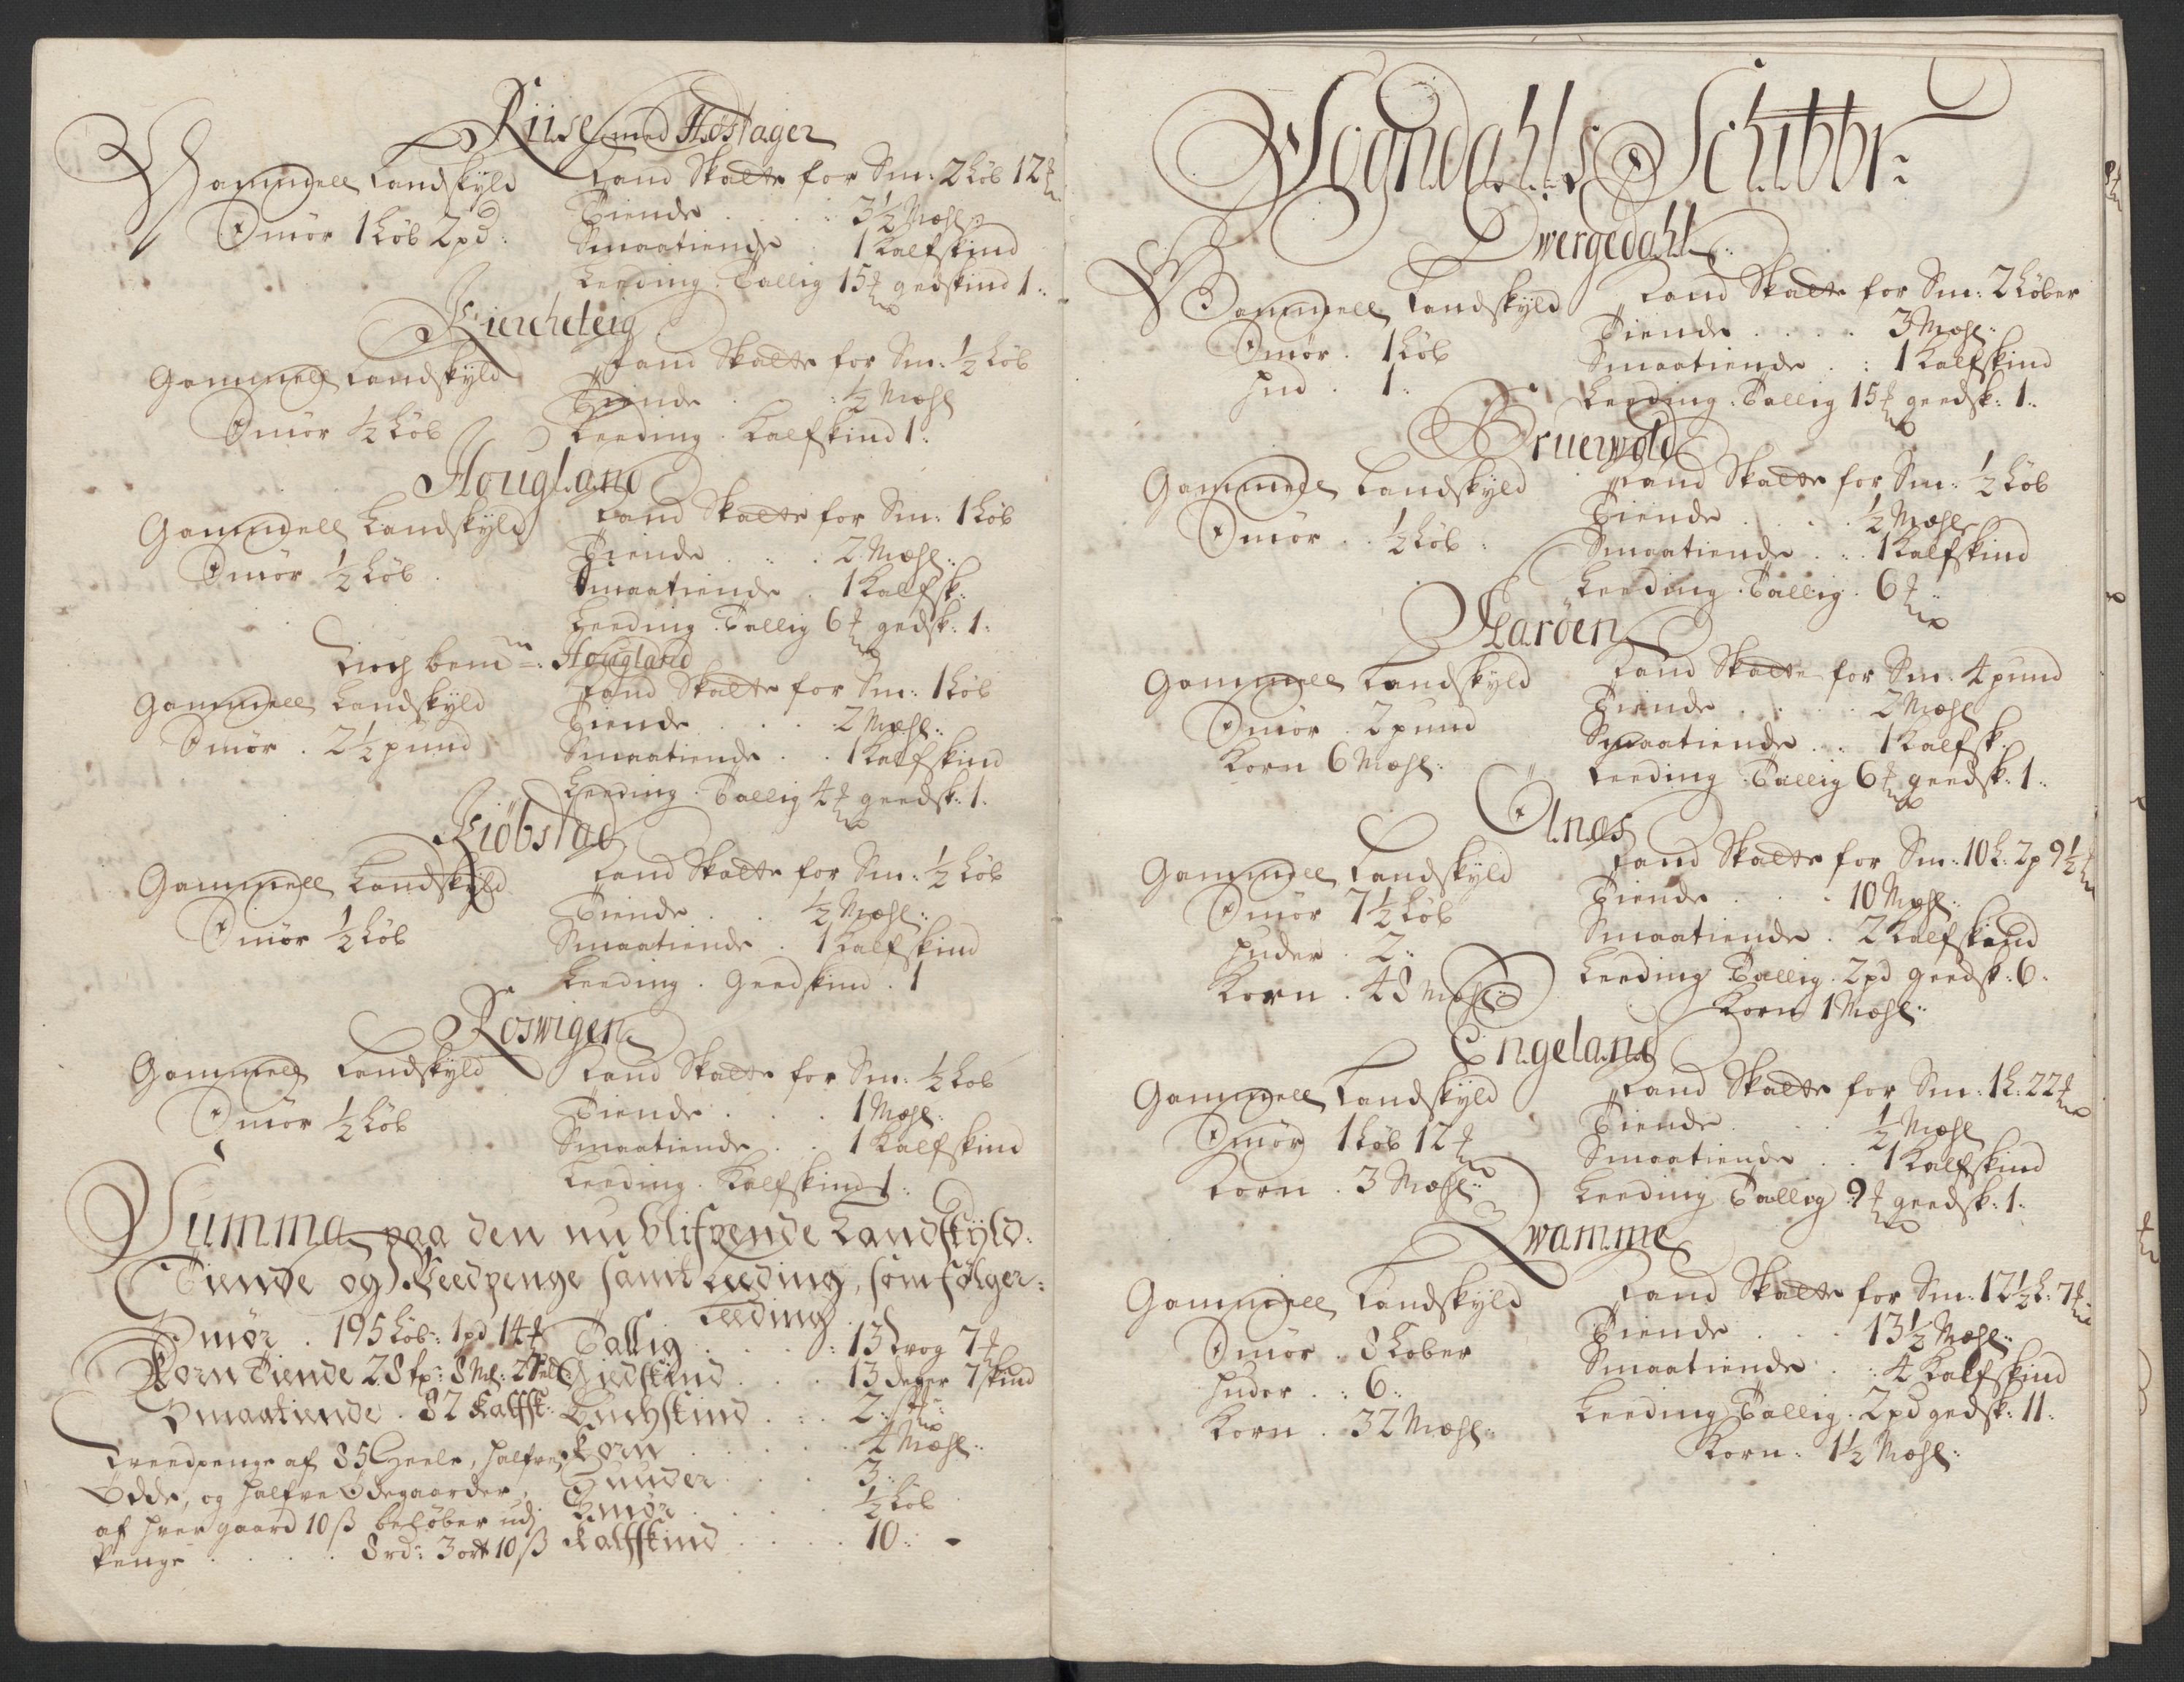 Riise med Høstager
Gammell Landskyld
Smør 1 Løb 2 pd:
Land Skatt for Sm: 2 Løb 12 ℔
Tiende . . . . 3½ Mæhl:
Smaatiende . 1 Kalfskind
Leeding . Tallig 15 ℔ gedskind 1:
Kiercheteig
Gammell Landskyld
Smør ½ Løb
Land Skatt for Sm: ½ Løb
Tiende . . : ½ Mæhl
Leeding . Kalfskind 1:
Hougland
Gammell Landskyld
Smør ½ Løb .
Land Skatt for Sm: 1 Løb
Tiende . . . 2 Mæhl:
Smaatiende . 1 Kalfsk:
Leeding . Tallig 6 ℔ gedsk: 1:
bem: Hougland
Gammell Landskyld
Smør . 2½ pund
Land Skatt for Sm: 1 Løb
Tiende . . . . 2 Mæhl:
Smaatiende . . 1 Kalfskind
Leeding . Tallig 4 ℔ geedsk: 1:
Kiøbstad
Gammell Landskyld
Smør ½ Løb
Land Skatt for Sm: ½ Løb
Tiende . . ½ Mæhl:
Smaatiende . 1 Kalfskind
Leeding . Geedskind . 1
Roswigen
Gammell Landskyld
Smør ½ Løb
Land Skatt for Sm: ½ Løb
Tiende . . . 1 Mæhl:
Smaatiende . . 1 Kalfskind
Leeding . Kalfskind 1:
Summa paa den nu blifvende Landskyld
Tiende og Leedpenge samt Leeding, som følger:
Smør . 195 Løb: 1 pd 14 ℔
Korn Tiende 28 tr: 8 Ml:
Smaatiende . 82 Kalfsk:
Leedpenge af 85 Heele, halfve
Ødde, og halfve Ødegaarder,
af hver gaard 10 ß beløber udj
Penge . . . . 8 rd: 3 ort 10 ß
Leeding
Tallig . . . : 13 trog 7 ℔
Giedskind . . . 13 deger 7 skind
Buchskind . . : 2:
Korn . . . . . 4 Mæhl:
Huuder . . . 3:
Smør . . . . ½ Løb
Kalfskind . . . . 10:
Sogndahls Schibbr:
Dwergedahl
Gammell Landskyld
Smør . 1 Løb
Hud . 1:
Land Skatt for Sm: 2 Løber
Tiende . . . . 3 Mæhl:
Smaatiende . : 1 Kalfskind
Leeding . Tallig 15 ℔ geedsk: 1:
Bruewold
Gammell Landskyld
Smør . . ½ Løb :
Land Skatt for Sm: ½ Løb
Tiende . . . . ½ Mæhl
Smaatiende . . . 1 Kalfskind
Leeding . Tallig . 6 ℔:
Garden
Gammell Landskyld
Smør . 2 pund
Korn 6 Mæhl:
Land Skatt for Sm: 4 pund
Tiende . . . . 2 Mæhl
Smaatiende . . 1 Kalfsk:
Leeding . Tallig 6 ℔ geedsk: 1:
Aanæs
Gammell Landskyld
Smør 7½ Løb
Huder . 2:
Korn . 48 Mæhl:
Land Skatt for Sm: 10 L: 2 p 9½ ℔
Tiende . . . 10 Mæhl:
Smaatiende . 2 Kalfskind
Leeding Tallig . 2 pd geedsk: 6:
Korn 1 Mæhl:
Engeland
Gammell Landskyld
Smør 1 Løb 12 ℔
Korn . 3 Mæhl:
Land Skatt for Sm: 1 L: 22 ℔
Tiende . . . ½ Mæhl
Smaatiende . . 1 Kalfskind
Leeding Tallig 9 ℔ geedsk: 1:
Qwamme
Gammell Landskyld
Smør . 8 Løber
Huder . : 6:
Korn . 32 Mæhl:
Land Skatt for Sm: 12½ L: 7 ℔
Tiende . . . 13½ Mæhl:
Smaatiende . : 4 Kalfskind
Leeding Tallig . 2 pd gedsk: 11:
Korn: 1½ Mæhl: